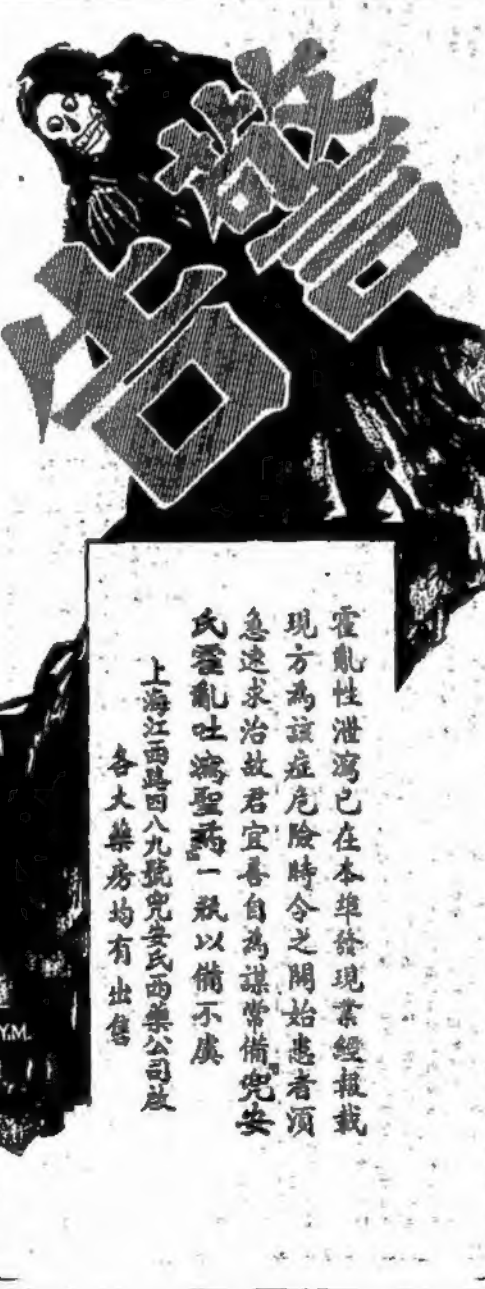 警告
霍亂性泄瀉已在本埠發現業經報載
現方為該症危險時令之開始患者須
急速求治故君宜善自為謀常備兜安
氏霍亂吐瀉聖药一瓶以備不虞
上海江西路四八九號兜安氏西藥公司啟
各大藥房均有出售
Y.M.